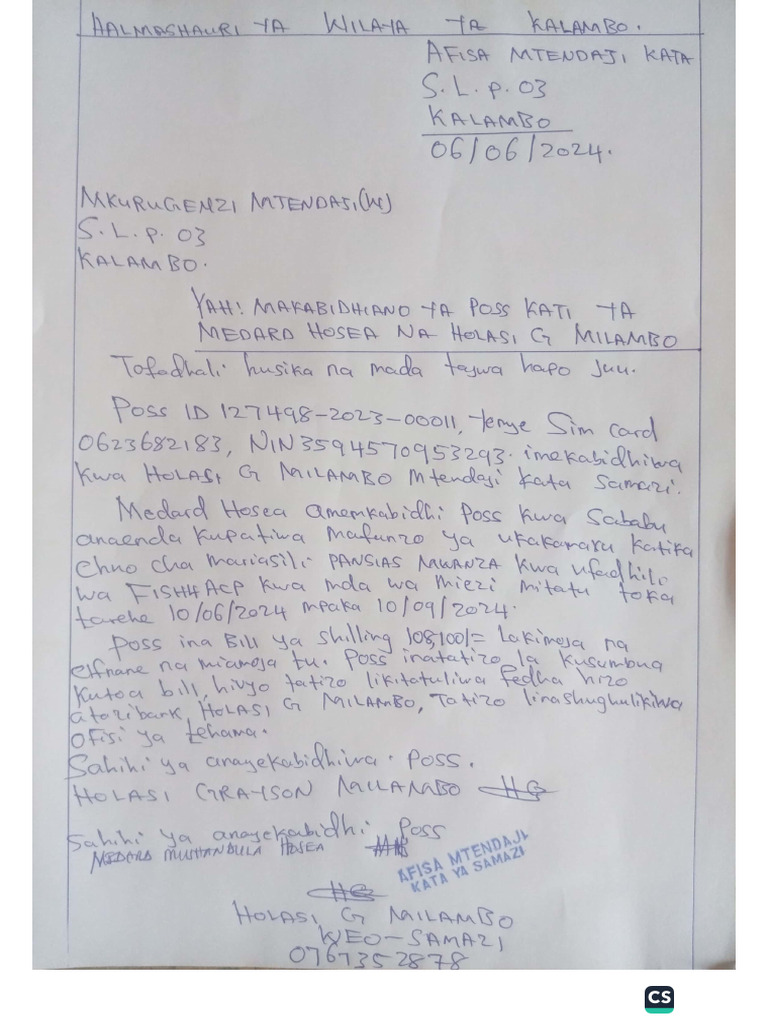 HALMASHAURI YA WILAYA YA KALAMBO.
AFISA MTENDAJI KATA
S.L.P. 03
KALAMBO
06/06/2024.
MKURUGENZI MTENDAJI (W)
S.L.P. 03
KALAMBO.
YAH: MAKABIDHIANO YA POSS KATI YA
MEDARD HOSEA NA HOLASI G MILAMBO
Tofadhali husika na mada tajwa hapo juu.
POSS ID 127498-2023-00011, tenye Sim card
0623682183, NIN 3594570953293. imekabidhiwa
kwa HOLASI G MILAMBO Mtendaji kata Samazi.
Medard Hosea amemkabidhi Poss kwa Sababu
anaenda kupatiwa mafunzo ya ukakamavu katika
chuo cha maliasili PANSIAS MWANZA kwa ufadhili
wa FISH4ACP kwa mda wa miezi mitatu toka
tarehe 10/06/2024 mpaka 10/09/2024.
Poss ina Bill ya shilling 108,100/= Lakimoja na
elfnane na miamoja tu. Poss inatatizo la kusumbua
kutoa bill, hivyo tatizo likitatuliwa fedha hizo
atazibank HOLASI G MILAMBO, Tatizo linashughulikiwa
ofisi ya tehama.
Sahihi ya anayekabidhiwa. POSS.
HOLASI GRAYSON MILAMBO HG
Sahihi ya anayekabidhi Poss
MEDARD MUSHANDULA HOSEA
AFISA MTENDAJI
KATA YA SAMAZI
HG
HOLASI G MILAMBO
WEO-SAMAZI
0767352878
CS